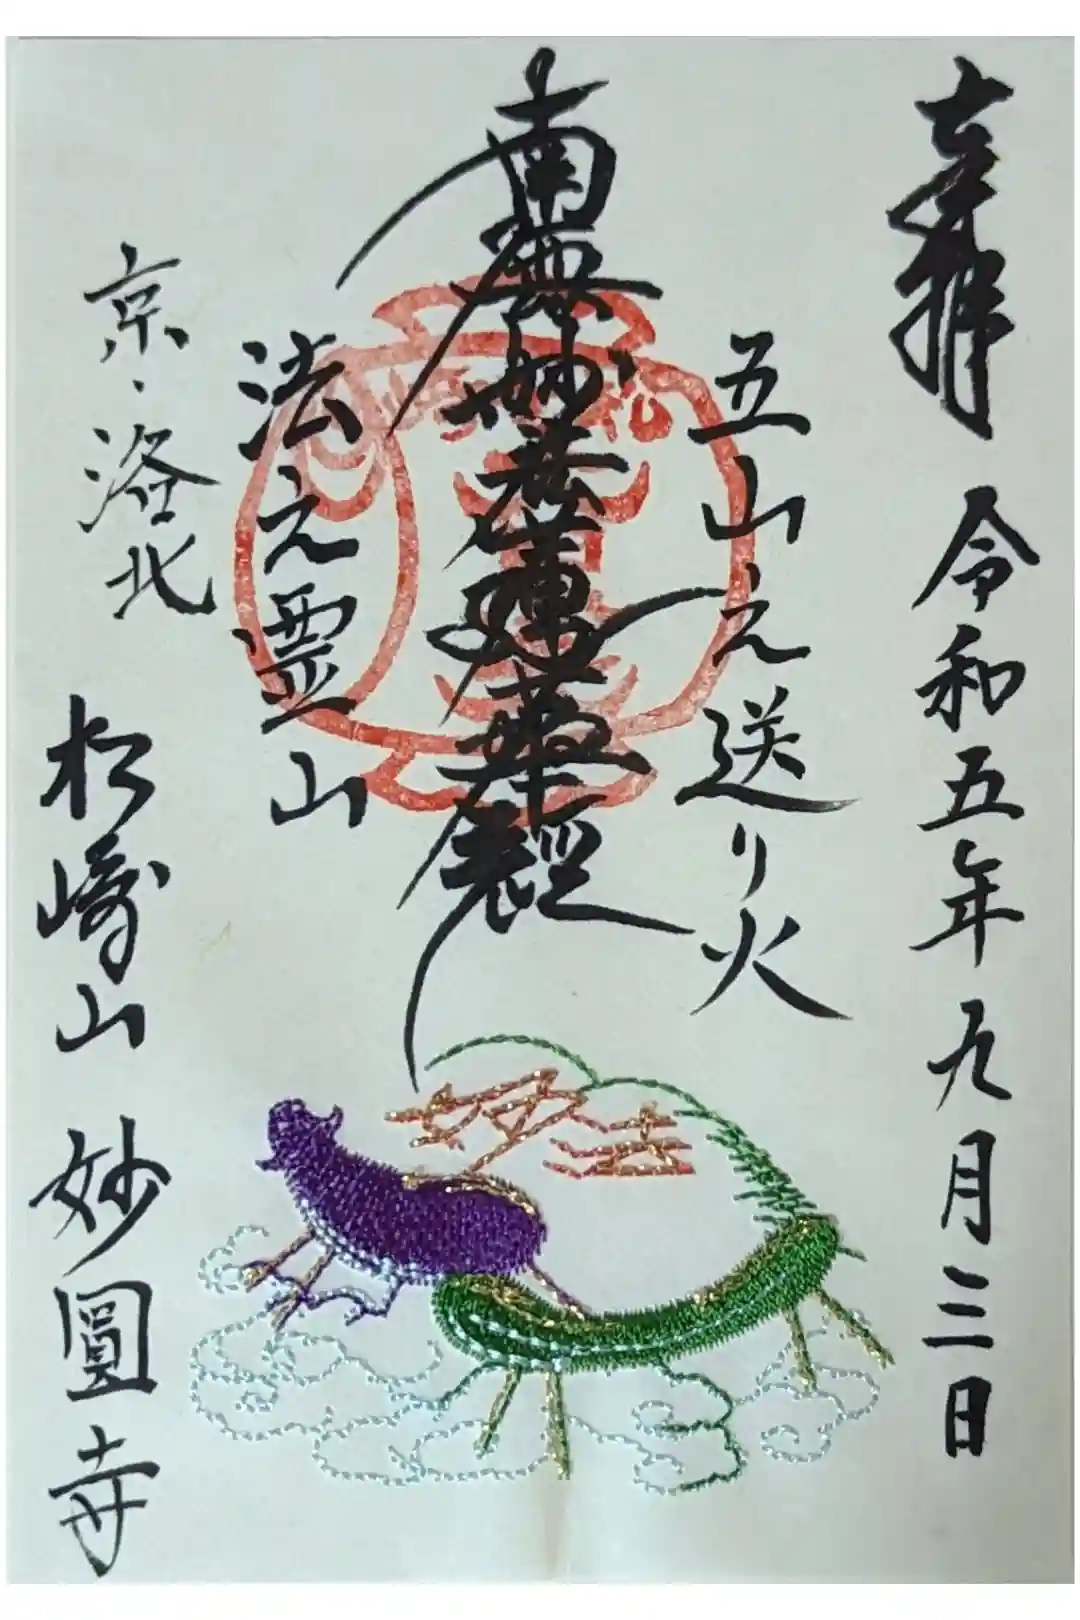 奉拝 令和五年九月三日
五山之送り火
南無妙法蓮華経
法之霊山
京、洛北
松崎山 妙圓寺
妙法